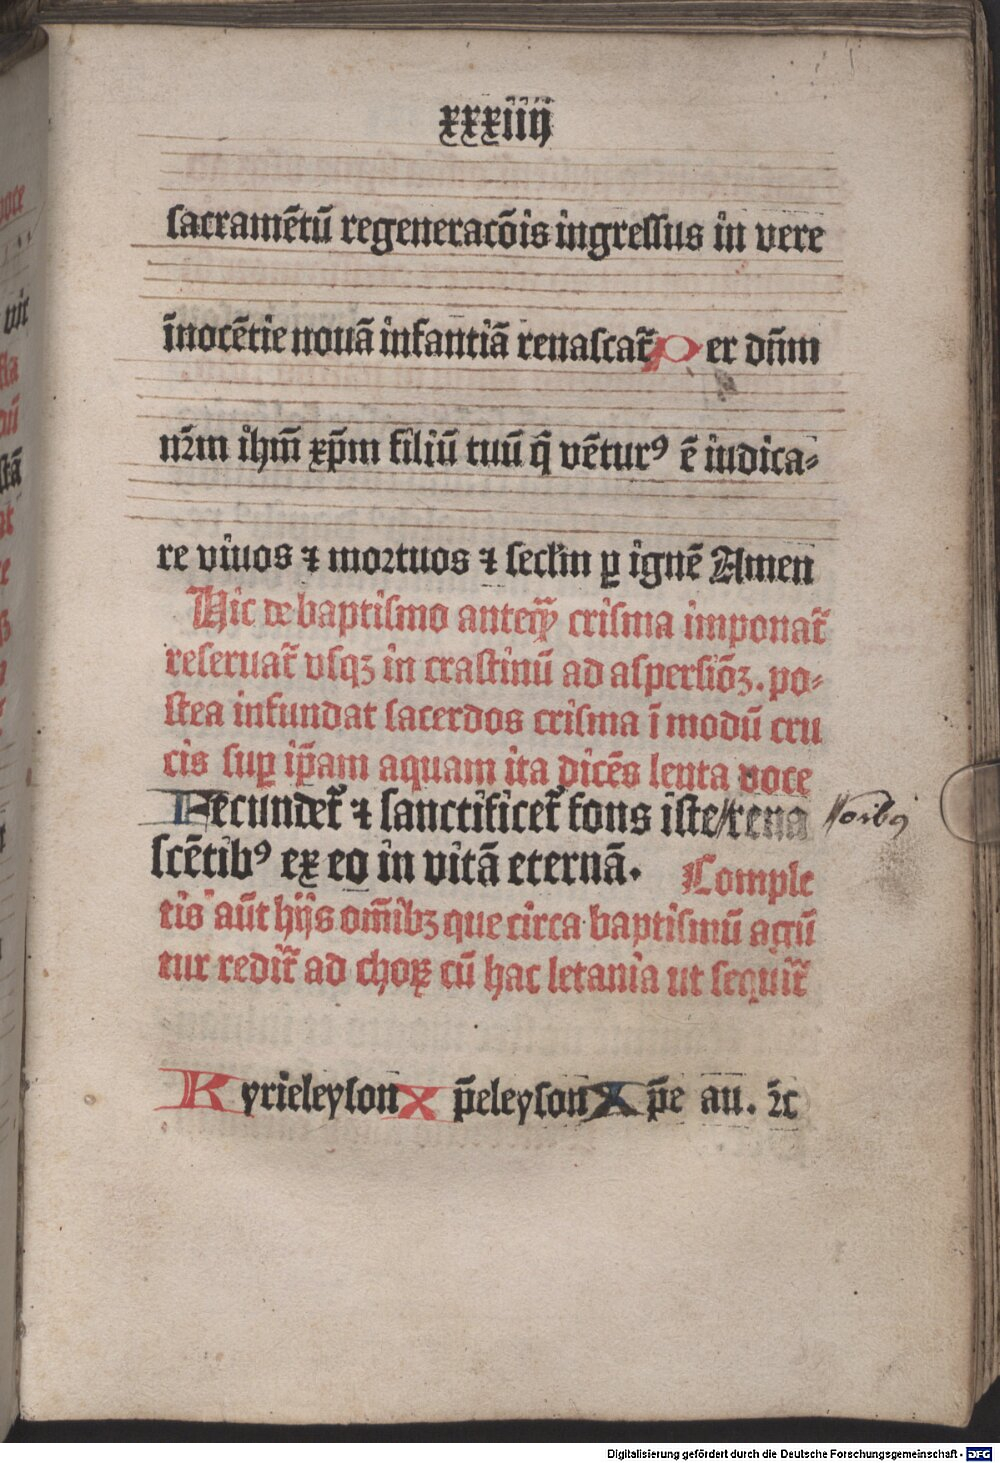 xxxiiij
sacramētū regeneracōis ingressus in vere
īnocētie nouā infantiā renascat᷑ Per dn̄m
nr̄m ihm̄ xp̄m filiū tuū q̄ vētur⁹ ē iudica⸗
re viuos ⁊ mortuos ⁊ secl̄m ꝑ ignē Amen
Hic de baptismo anteꝙ̄ crisma imponat᷑
reseruat᷑ vsqꝫ in crastinū ad aspersiōꝫ. po⸗
stea infundat sacerdos crisma ī modū cru
cis suꝑ ip̄am aquam ita dicēs lenta voce
Fecundet᷑ ⁊ sanctificet᷑ fons iste rena
scētib⁹ ex eo in vitā eternā.
Comple
tis aūt hijs om̄ibꝫ que circa baptismū agū
tur redit᷑ ad choꝝ cū hac letania ut sequit᷑
Kyrieleyson Xp̄eleyson Xp̄e au. ⁊c̄
Digitalisierung gefördert durch die Deutsche Forschungsgemeinschaft - DFG